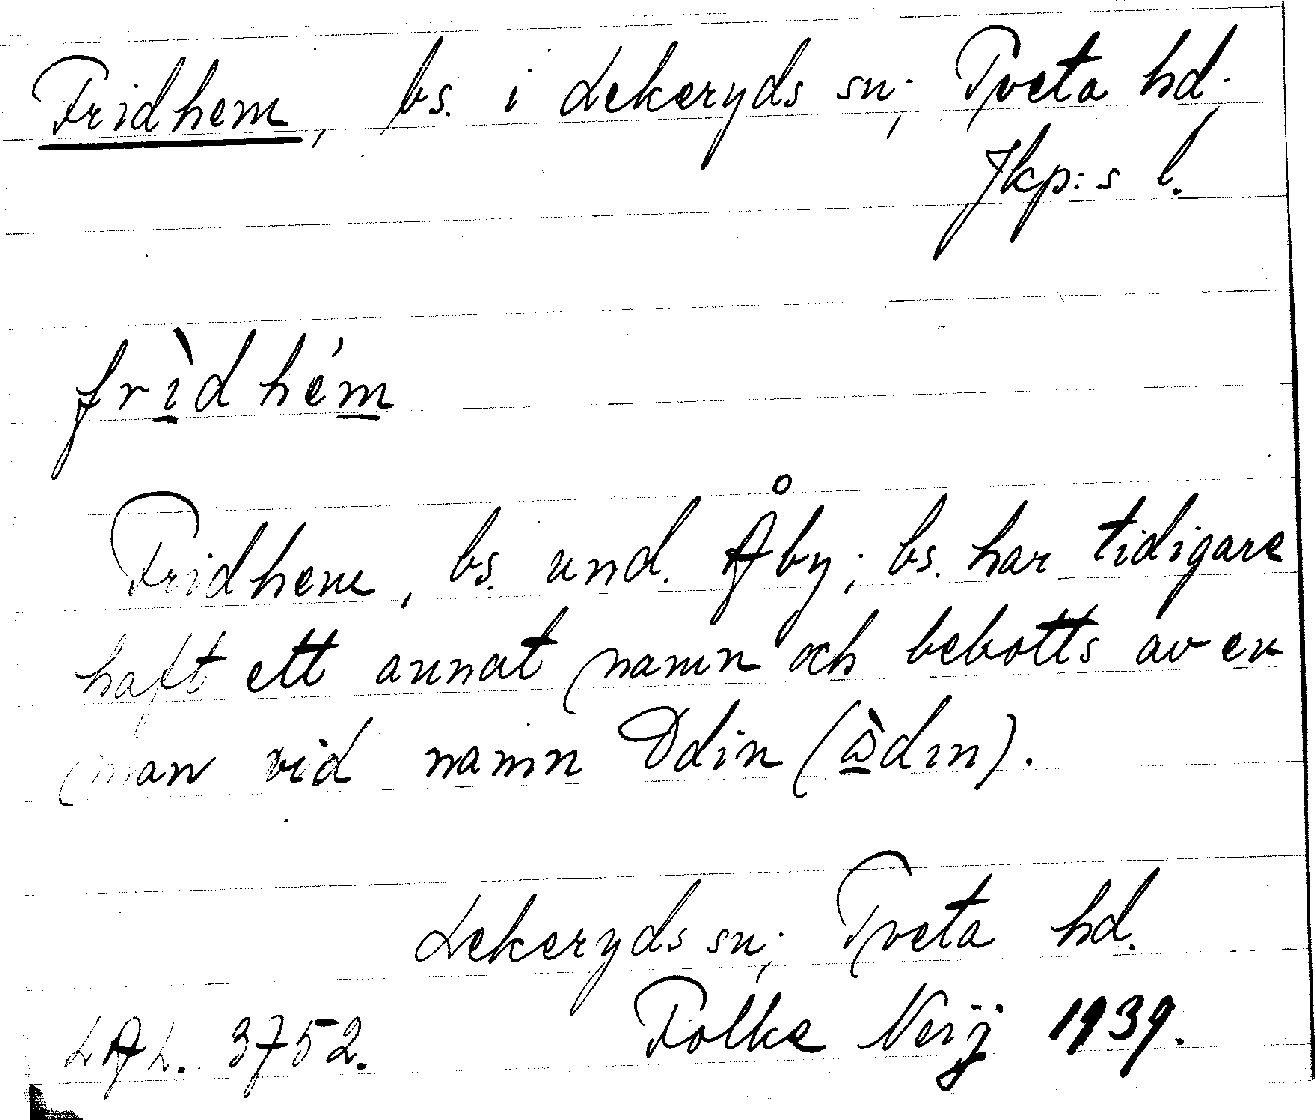 Fridhem, bs. i Lekeryds sn; Tveta hd.
Jkp:s l.
frìdhém
Fridhem, bs. und. Åby; bs. har tidigare
haft ett annat namn och bebotts av en
man vid namn Odin (ὼdın).
Lekeryds sn; Tveta hd.
LAL. 3752. Folke Neij 1939.